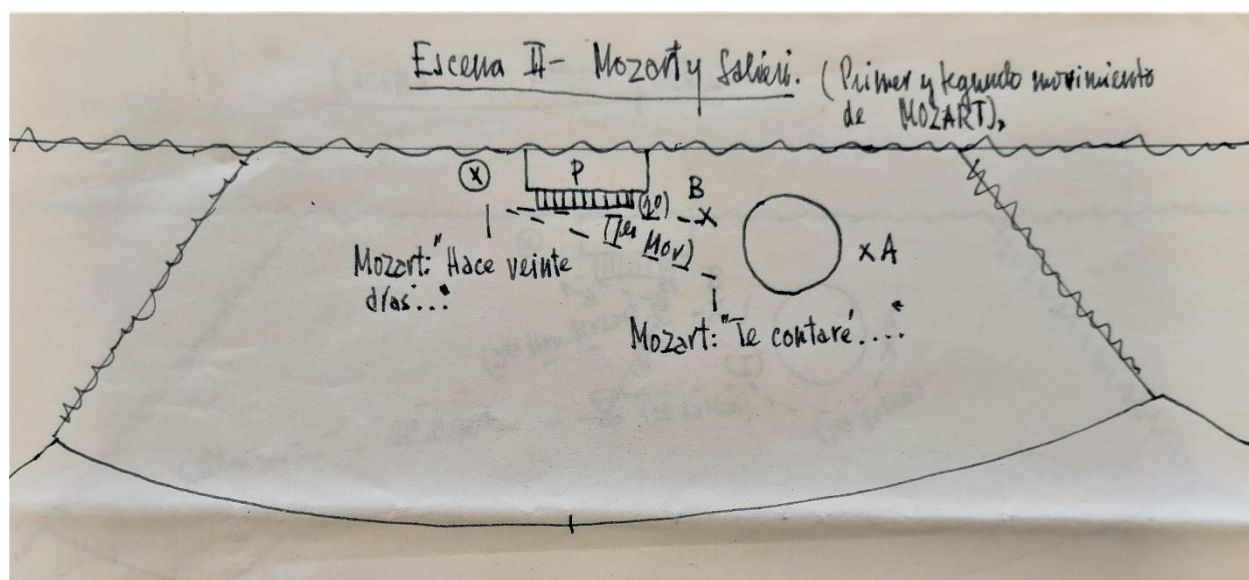 Escena II - Mozart y Salieri. (Primer y segundo movimiento
de MOZART).
X
P
B
(2º)
X
(1er Mov)
X A
Mozart: "Hace veinte
días..."
Mozart: "Te contaré...."